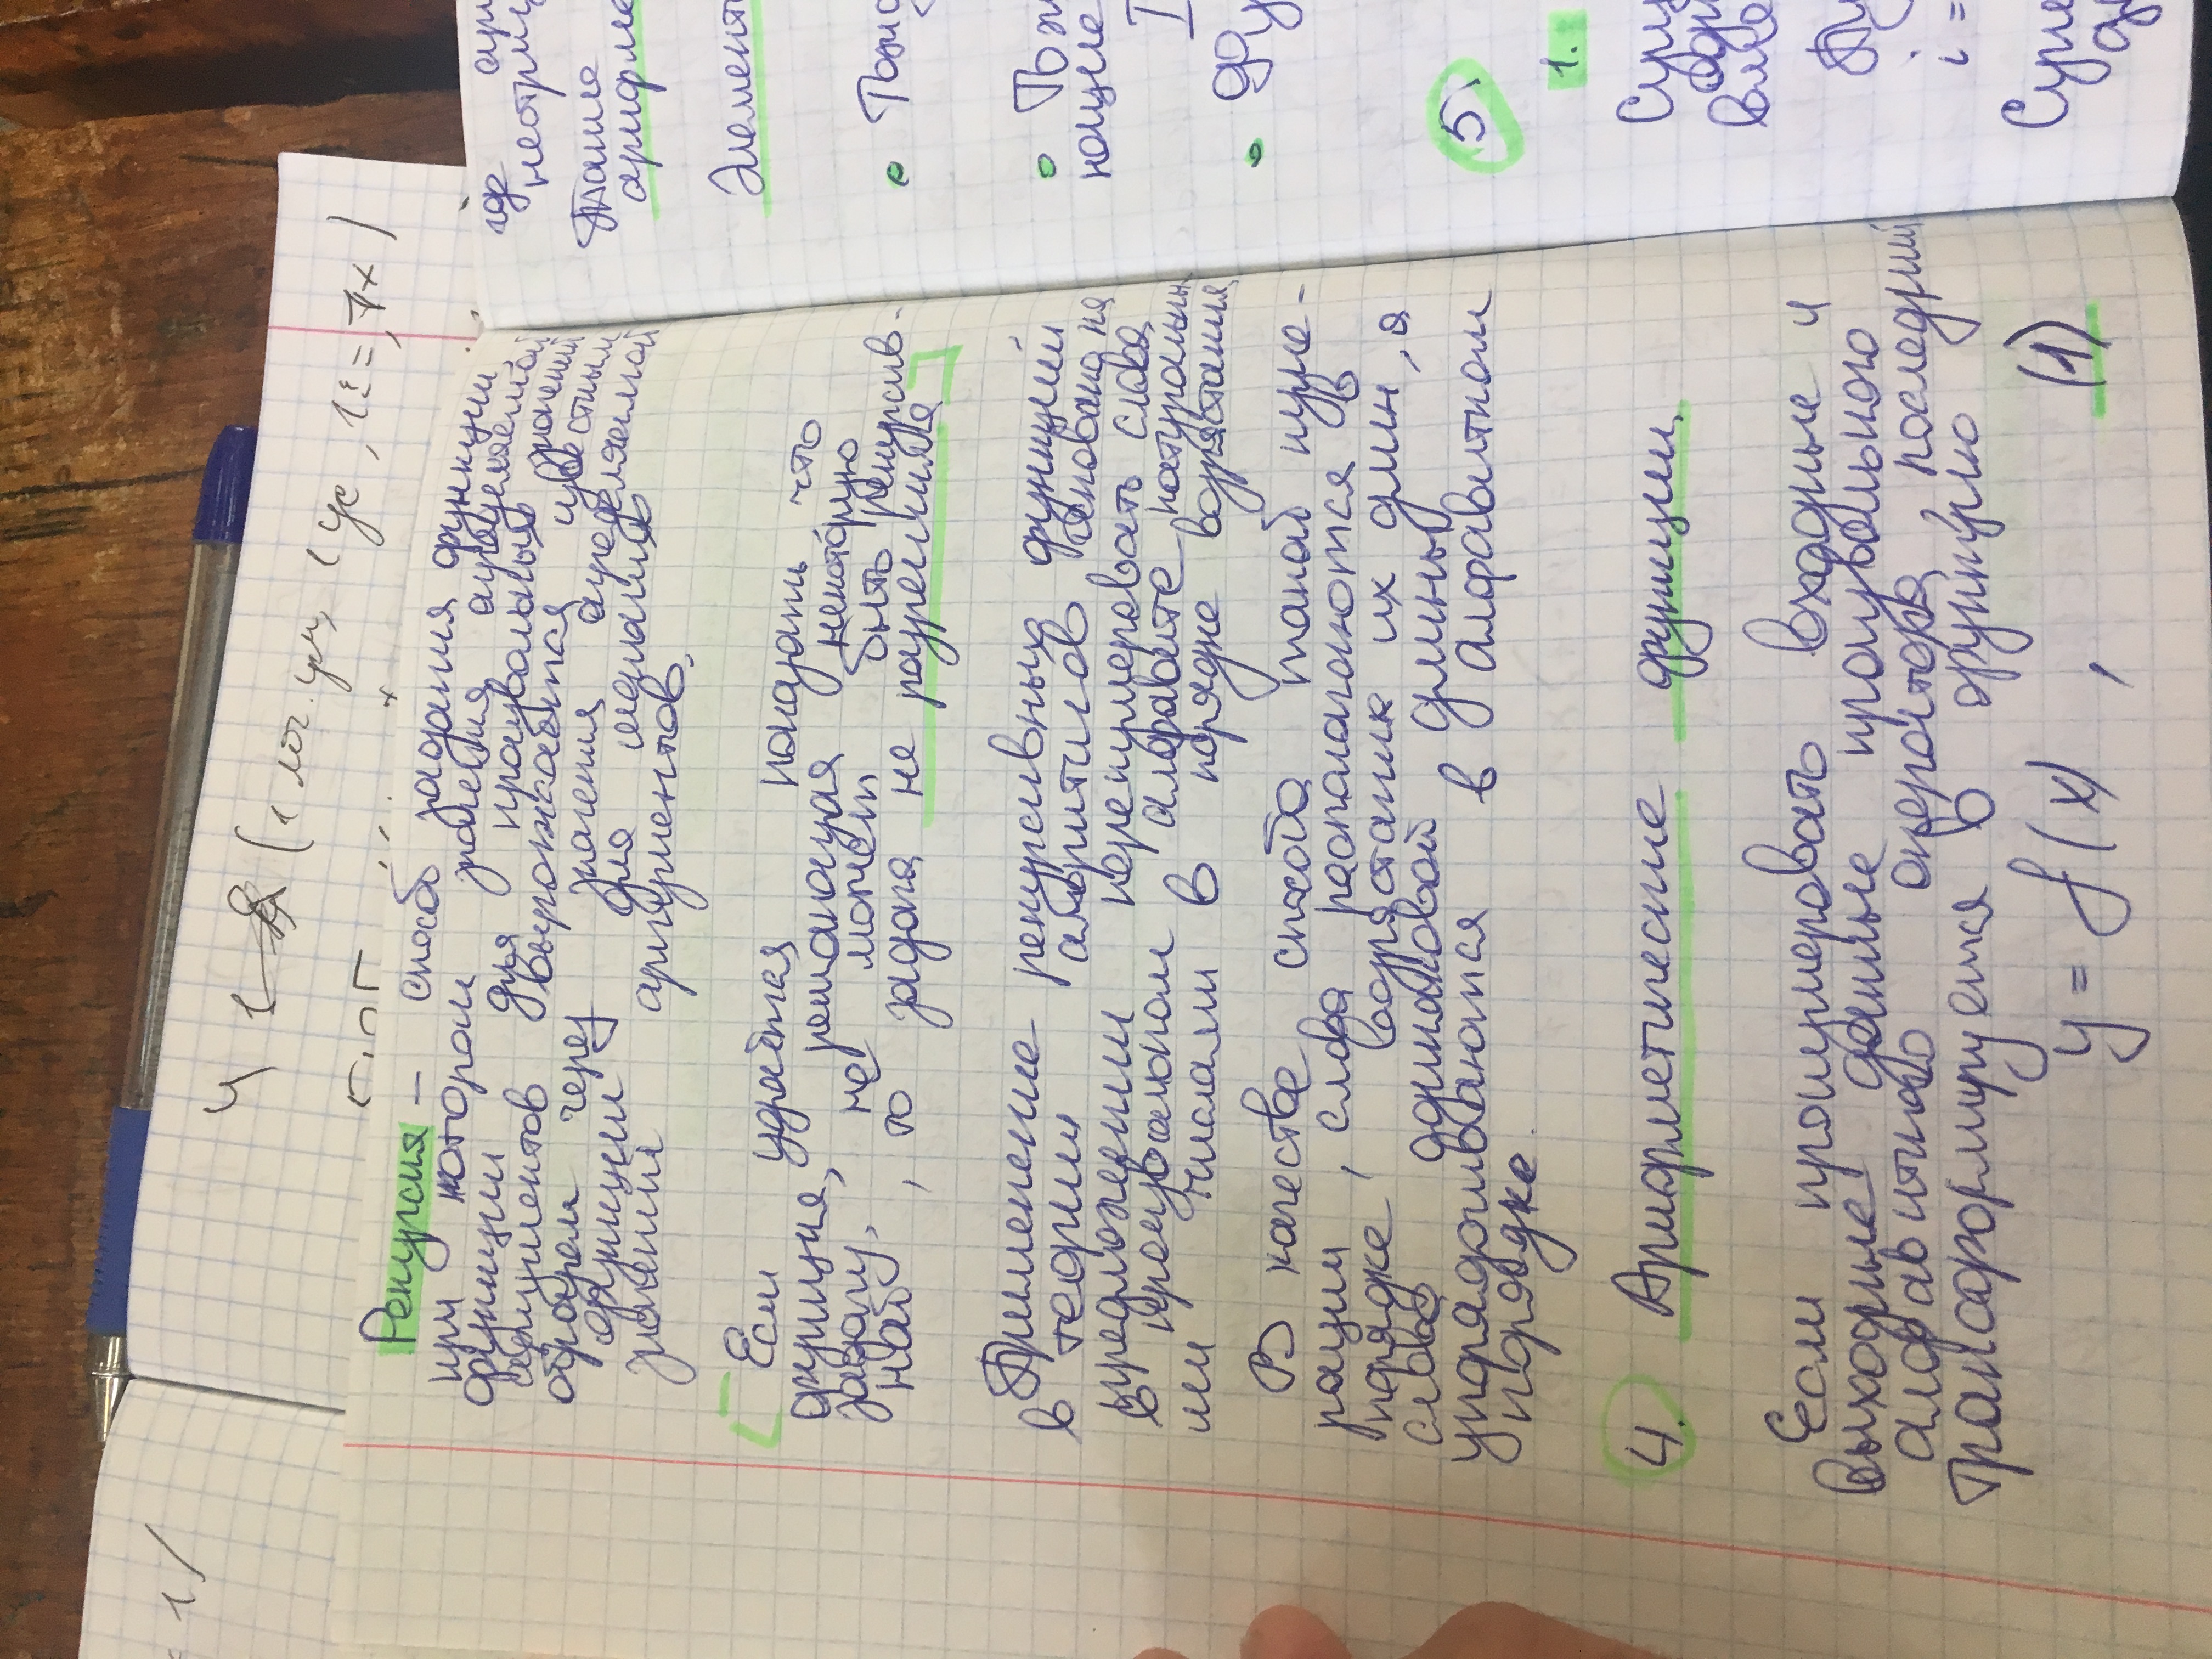 = 1)
4 1 (1 лог. ум, 1 ус, 1: =, 7x)
Рекурсия – способ задания функции,
при котором значения определяемой
функции для произвольных значений
аргументов выражается известным
образом через значения определяемой
функции для меньших
значений аргументов.
Если удаётся показать, что
функция, решающая некоторую
задачу, не может быть рекурсив-
ной, то задача не разрешима
Применение рекурсивных функций
в теории алгоритмов основано на
предложении перенумеровать слова
в произвольном алфавите натуральны-
ми числами в порядке возрястания
В качестве способа такой нуме-
рации, слова располагаются в
порядке возрястания их длин, а
слова одинаковой длины
упорядочиваются в алфавитном
порядке.
4. Арифметические функции
Если пронумеровать входные и
выходные данные произвольного
алфавитного оператора, последний
трансформируется в функцию
y = f(x), (1)
где
Такие
арифме
Элемент
• Тожд
• Тож
ющие
I
• Фу
5.
1.
Сущ
вле
i =